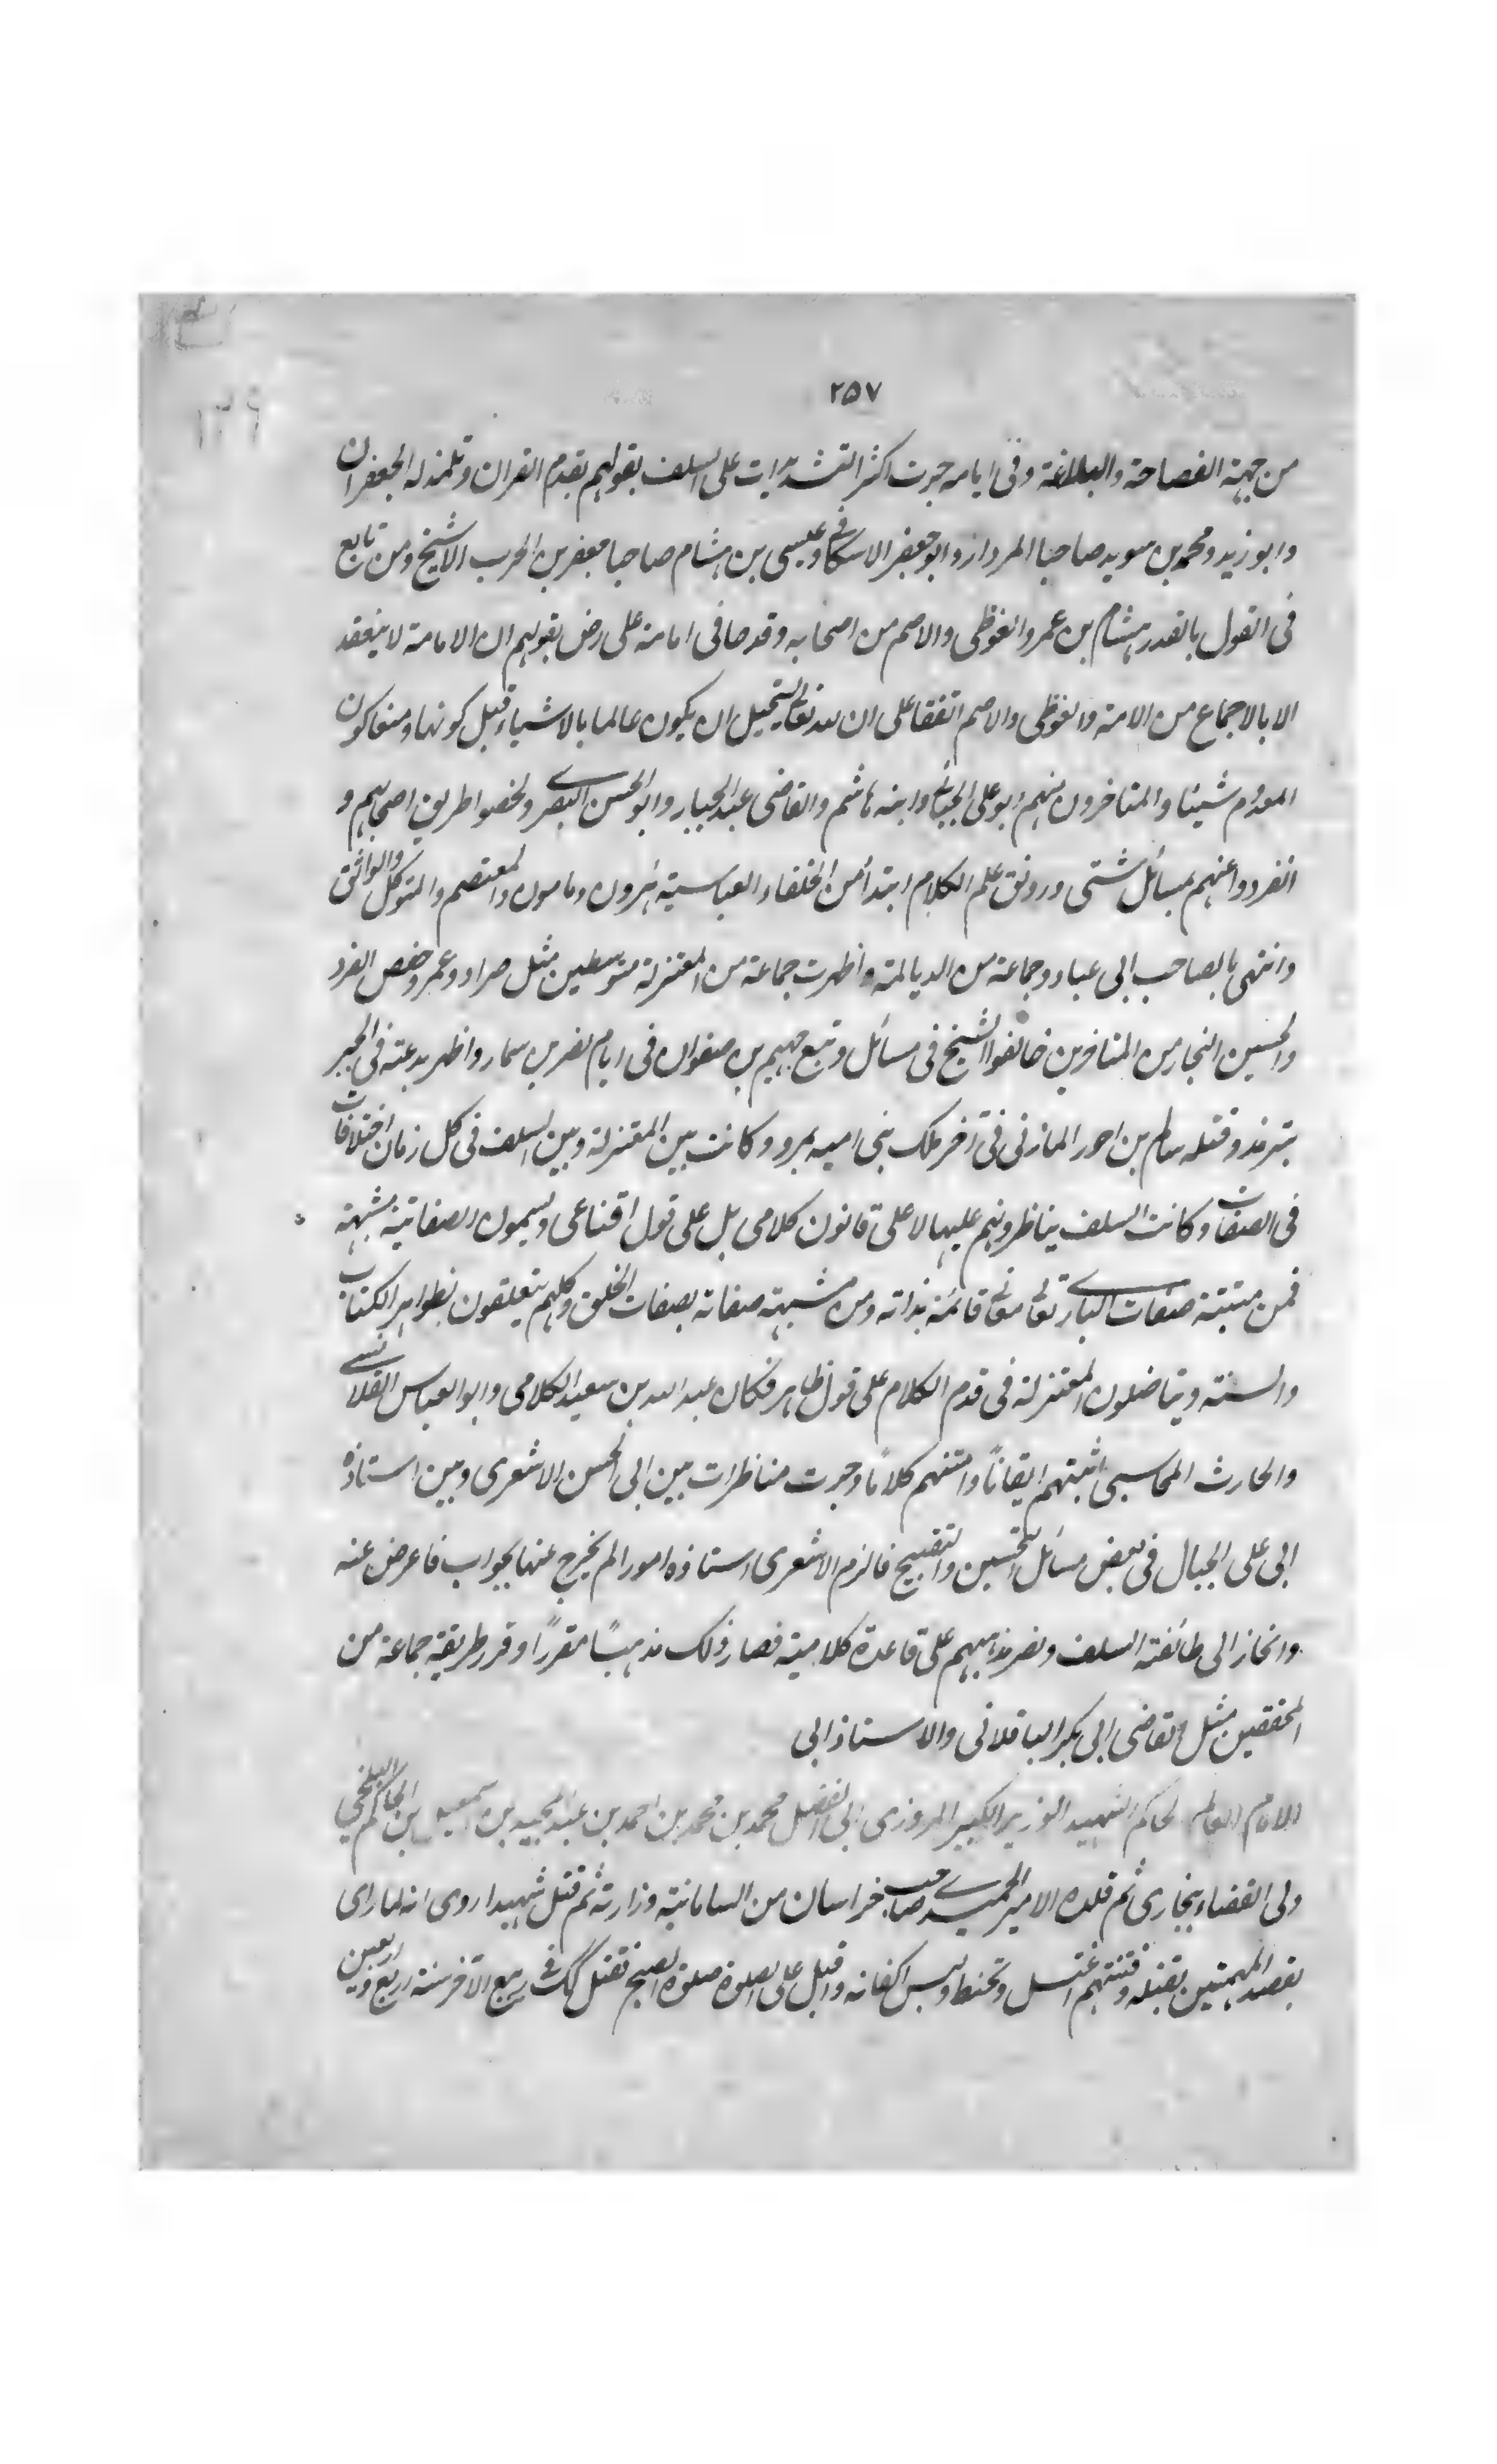 ٢٥٧
من جهة الفصاحة والبلاغة وفى ايامه جرت اكثر التشديدات على السلف بقولهم بقدم القران وتلمذ له الجعفران
وابو زيد ومحمد بن سويد صاحبا المردار وابو جعفر الاسكافى وعيسى بن هشام صاحبا جعفر بن الحرب الاشيخ ومن تابع
فى القول بالقدر هشام بن عمرو الفوظى والاصم من اصحابه وقدحا فى امامة على رض بقولهم ان الامامة لا ينعقد
الا بالاجماع من الامة والفوظى والاصم اتفقا على ان الله تعالى يستحيل ان يكون عالما بالاشياء قبل كونها ومنعا كون
المعدوم شيئا والمتاخرون منهم ابو على الجبائى وابنه هاشم والقاضى عبد الجبار وابو الحسن البصرى لخصوا طريق اصحابهم و
انفردوا عنهم بمسائل شتى ورونق علم الكلام ابتدأ من الخلفاء العباسية هرون ومامون والمعتصم والمتوكل والواثق
وانتهى بالصاحب ابى عباد وجماعة من الديالمة وظهرت جماعة من المعتزلة متوسطين مثل ضرار وعمرو حفص الفرد
والحسين النجار من المتاخرين خالفوا الشيخ فى مسائل وتبع جهيم بن صفوان فى ايام نصر بن سمار واظهر بدعته فى الجبر
بترمذ وقتله سالم بن احور المازنى فى آخر ملك بنى اميه بمرو وكانت بين المعتزلة وبين السلف فى كل زمان اختلافات
فى الصفات وكانت السلف يناظرونهم عليها لا على قانون كلامى بل على قول اقناعى ويسمون الصفاتية مشبهة
فمن مثبتة صفات البارى تعالى معانى قائمة بذاته ومن مشبهة صفاته بصفات الخلق وكلهم يتعلقون بظواهر الكتاب
والسنة ويناضلون المعتزلة فى قدم الكلام على قول ظاهر فكان عبد الله بن سعيد الكلامى وابو العباس القلانسى
والحارث المحاسبى اثبتهم ايقانًا وامتنهم كلامًا وجرت مناظرات بين ابى الحسن الاشعرى وبين استاذه
ابى على الجبال فى بعض مسائل التحسين والتقبيح فالزم الاشعرى استاذه امورا لم يخرج عنها بجواب فاعرض عنه
وانحاز الى طائفة السلف ونصر مذهبهم على قاعدة كلامية فصار ذلك مذهبًا مقررًا وقرر طريقة جماعة من
المحققين مثل القاضى ابى بكر الباقلانى والاستاذ ابى
الامام العالم الحاكم الشهيد الوزير الكبير المروزى ابى الفضل محمد بن محمد بن احمد بن عبد المجيد بن اسمعيل بن الحاكم البلخى
ولى القضاء ببخارى ثم قلده الامير الحميد صاحب خراسان من السامانية وزارته ثم قتل شهيدا روى انه لما راى
بقصد المهمتين بقتله وفتنتهم اغتسل وتحنط ولبس اكفانه واقبل على الصلوة صلوة الصبح فقتل كك فى ربيع الآخر سنة اربع واربعين